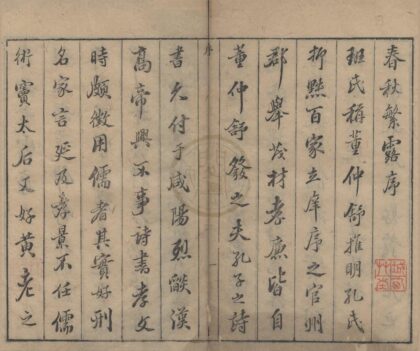 春秋繁露序
班氏稱董仲舒推明孔氏
抑黜百家立庠序之官州
郡舉茂材孝廉皆自
董仲舒發之夫孔子之詩
序
書久付于咸陽烈燄漢
高帝興不事詩書孝文
時頗徵用儒者其實好刑
名家言延及孝景不任儒
術竇太后又好黃老之